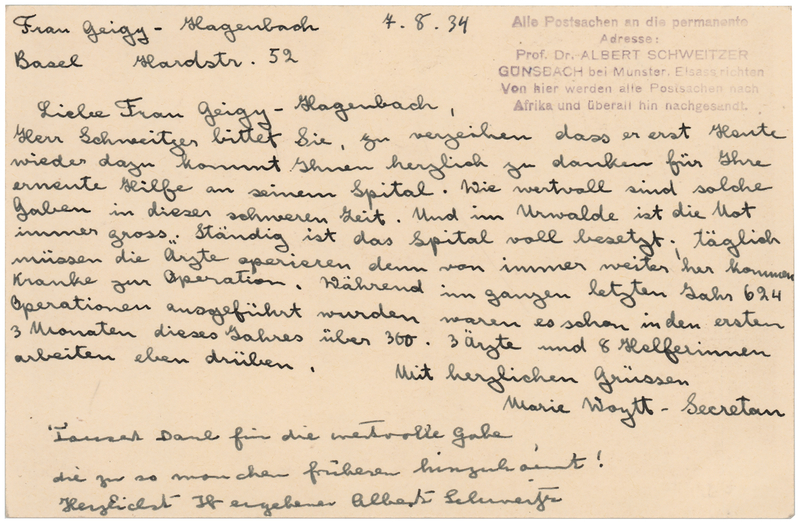 Frau Geigy - Hagenbach 7.8.34
Basel Hardstr. 52
Alle Postsachen an die permanente
Adresse:
Prof. Dr. ALBERT SCHWEITZER
GÜNSBACH bei Munster, Elsass richten
Von hier werden alle Postsachen nach
Afrika und überall hin nachgesandt.
Liebe Frau Geigy - Hagenbach,
Herr Schweitzer bittet Sie, zu verzeihen dass er erst Heute
wieder dazu kommt Ihnen herzlich zu danken für Ihre
erneute Hilfe an seinem Spital. Wie wertvoll sind solche
Gaben in dieser schweren Zeit. Und im Urwalde ist die Not
immer gross. Ständig ist das Spital voll besetzt; täglich
müssen die Ärzte operieren denn von immer weiter her kommen
Kranke zur Operation. Während im ganzen letzten Jahr 624
Operationen ausgeführt wurden waren es schon in den ersten
3 Monaten dieses Jahres über 300. 3 Ärzte und 8 Helferinnen
arbeiten eben drüben.
Mit herzlichen Grüssen
Marie Woytt - Secretan
Tausend Dank für die wertvolle Gabe
die zu so manchen früheren hinzukommt!
Herzlichst Ihr ergebener Albert Schweitzer